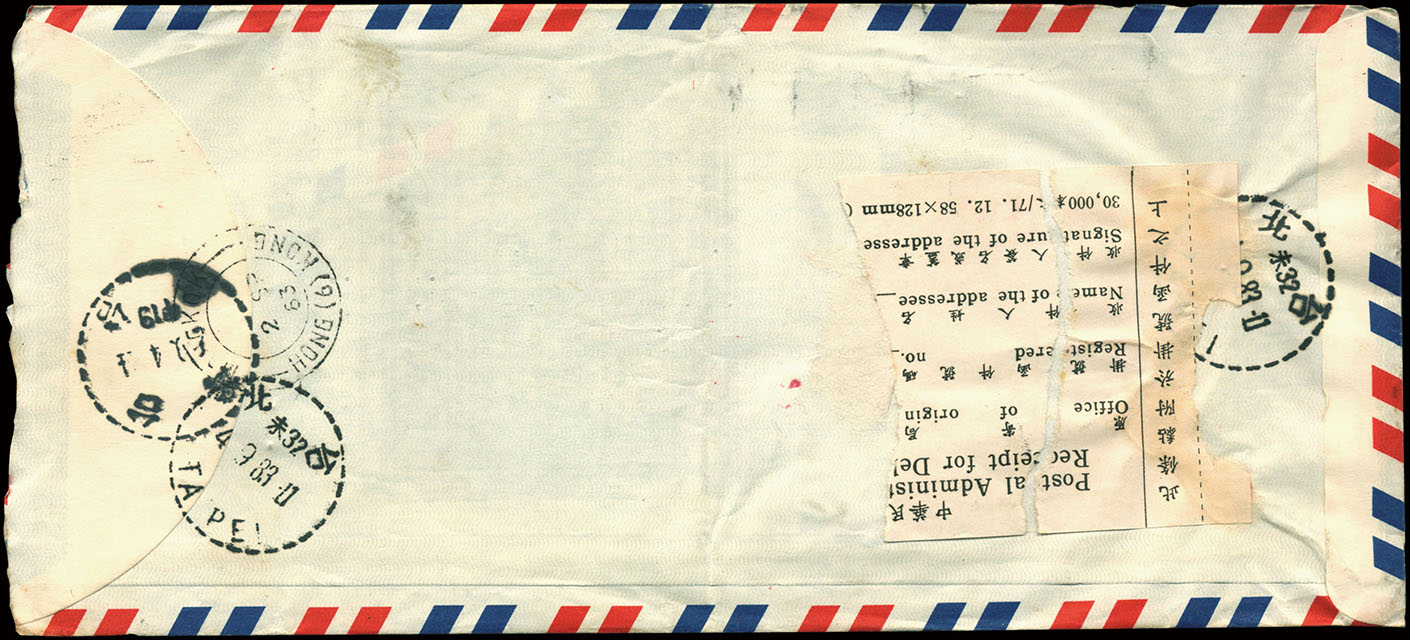 中華民
Postal Administ
Receipt for Del
原寄局
Office of origin
掛號函件號碼
Registered no.
收件人姓名
Name of the addressee
收件人簽名或蓋章
Signature of the addresse
30,000本/71. 12. 58×128mm (
此條黏附於掛號函件之上
HONG KONG (6)
2 SE
83
台北
未32
4 9 83
TAIPEI
台北
未32
9 83
台